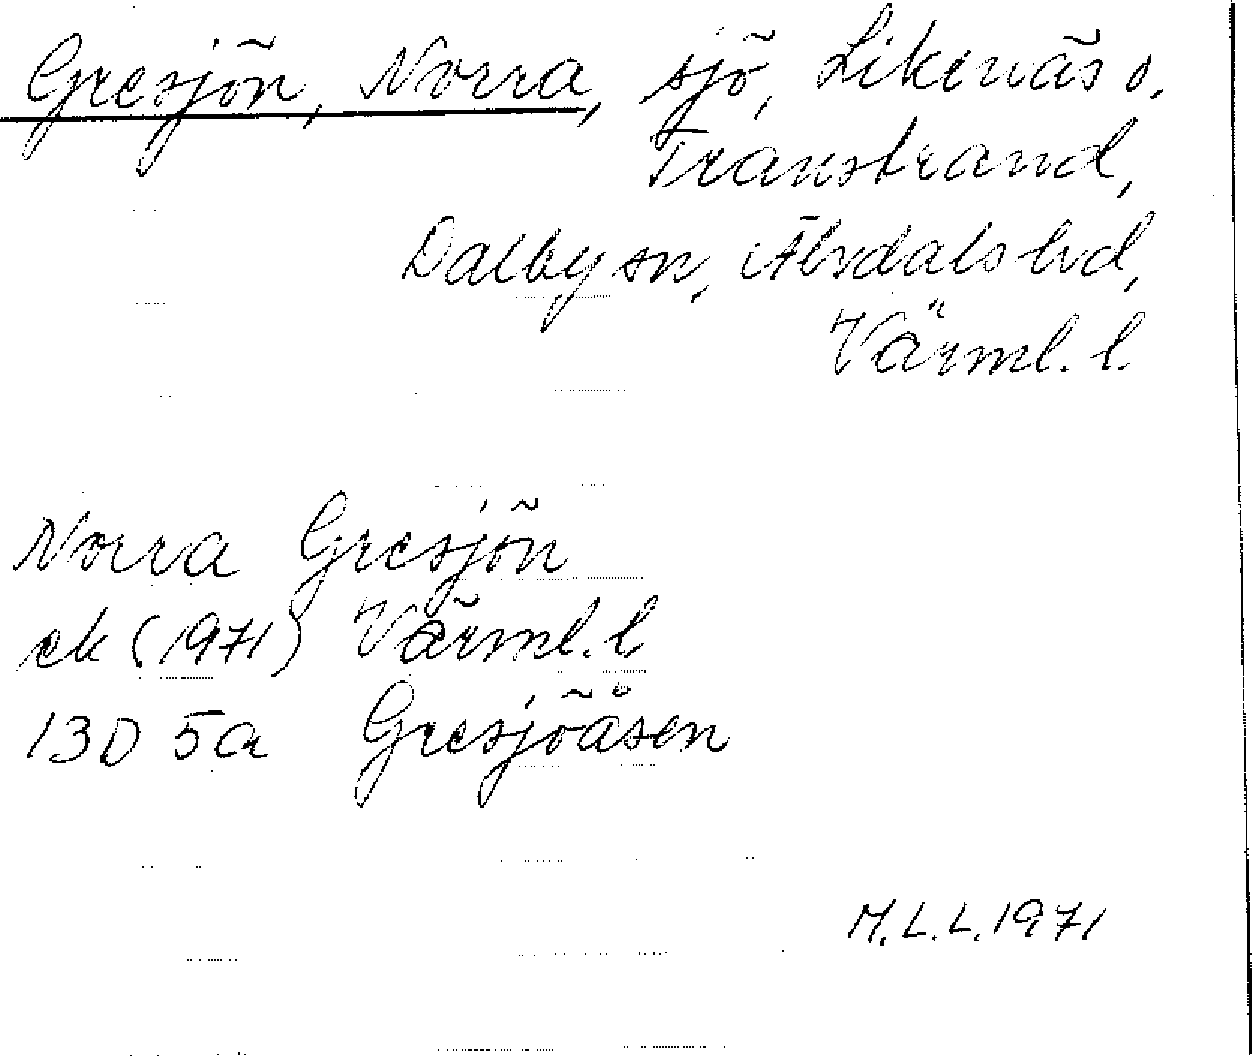 Gresjön, Norra, sjö, Likenäs o.
Transtrand,
Dalby sn, Älvdals hd,
Värml. l.
Norra Gresjön
ek (1971) Värml. l
13D 5a Gresjöåsen
M.L.L. 1971